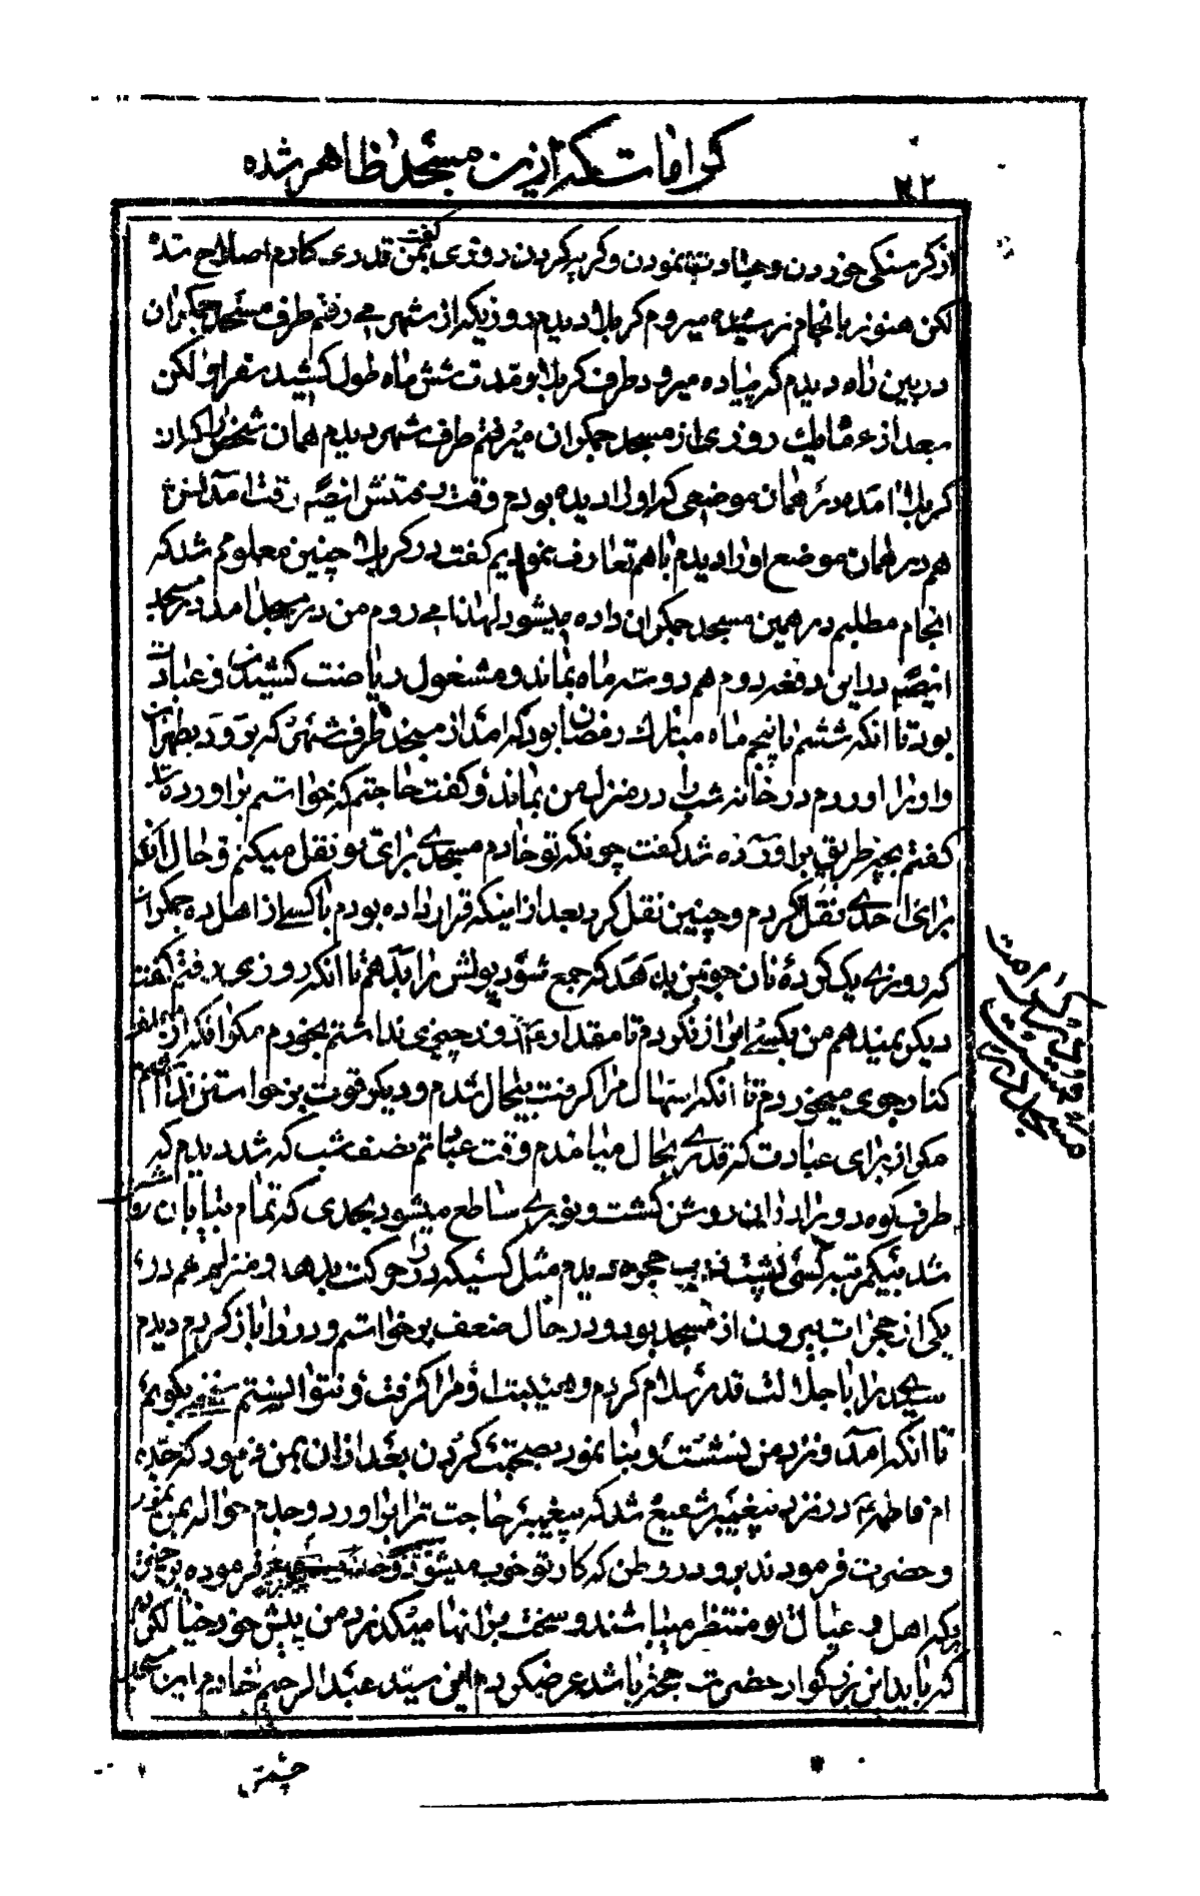 کراماتیکه ازین مسجد ظاهر شده
۴۲
از گرسنگی خوردن و عبادت نمودن و گریه کردن روزی بمن گفت قدری کارم اصلاح شد
لکن هنوز بانجام نرسیده میروم کربلا دیدم روزیکه از شهر می رفتم طرف مسجد جمکران
در بین راه دیدم که پیاده میرود طرف کربلا و مدت شش ماه طول کشید سفر او لکن
بعد از روزی از مسجد جمکران میرفتم طرف شهر دیدم همان شخص را که از
کربلا آمده در همان موضعی که اورا دیده بودم وقت رفتنش وقت آمدنش
هم در همان موضع اورا دیدم باهم تعارف نمودیم گفت در کربلا چنین معلوم شد که
انجام مطلبم در همین مسجد جمکران داده میشود لهذا می روم من در آمد در مسجد
در این دفعه دوم هم دو سه ماه بماند و مشغول ریاضت کشیدن و عبادت
بود تا آنکه ششم یا پنجم ماه مبارک رمضان بود که آمد از مسجد طرف شهر که برود بطهران
و اورا آوردم در خانه شب را در منزل من بماند و گفت حاجتم که خواستم برآورده شد
گفتم بچه طریق برآورده شد گفت چونکه تو خادم مسجدی برای تو نقل میکنم و حال آنکه
برای احدی نقل نکردم و چنین نقل کرد بعد از اینکه قرار داده بودم با کسی از اهل ده جمکران
که روزی یک گرده نان جوین بدهد که جمع شود پولش را بدهم تا آنکه روزی رفتم گفت
دیگر نمیدهم من بکسی ابراز نکردم تا مقدار روز چیزی نداشتم بخورم مگر آنکه از
کنار جوی میخوردم تا آنکه اسهال مرا گرفت بیحال شدم و دیگر قوت برخواستن نداشتم
مگر از برای عبادت که قدری بحال میآمدم وقت عبادتم نصف شب که شد دیدم که
طرف کوه دو برادران روشن گشت و نوری ساطع میشود بحدی که تمام بیابان روشن
شد بیکمرتبه کسی پشت درب حجره دیدم مثل کسیکه در را حرکت بدهد و منزلم هم در
یکی از حجرات بیرون از مسجد بود و در حال ضعف برخواستم و در را باز کردم دیدم
سیدی را با جلالت قدر سلام کردم و هیبت او مرا گرفت و نتوانستم سخنی بگویم
تا آنکه آمد و نزد من نشست و بنا نمود صحبت کردن بعد از آن بمن فرمود که جده
ام فاطمه در نزد پیغمبر شفیع شد که پیغمبر حاجت ترا برآورد و جدم حواله بمن نمود
و حضرت فرمودند برو در وطن که کار تو خوب میشود فرموده برخیز
که اهل و عیال تو منتظر میباشند و سخت برآنها میگذرد من پیش خود خیال کردم
که باید این بزرگوار حضرت حجة باشد عرض کردم این سید عبدالرحیم خادم این مسجد
مسجد